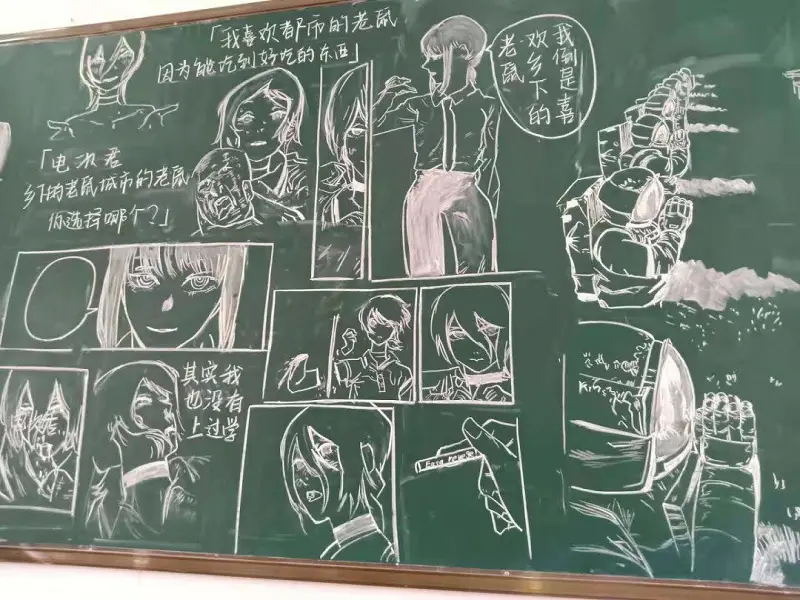 「我喜欢都市的老鼠
因为能吃到好吃的东西」
我倒是喜
欢乡下的
老鼠
「电次君
乡下的老鼠城市的老鼠
你选择哪个?」
其实我
也没有
上过学